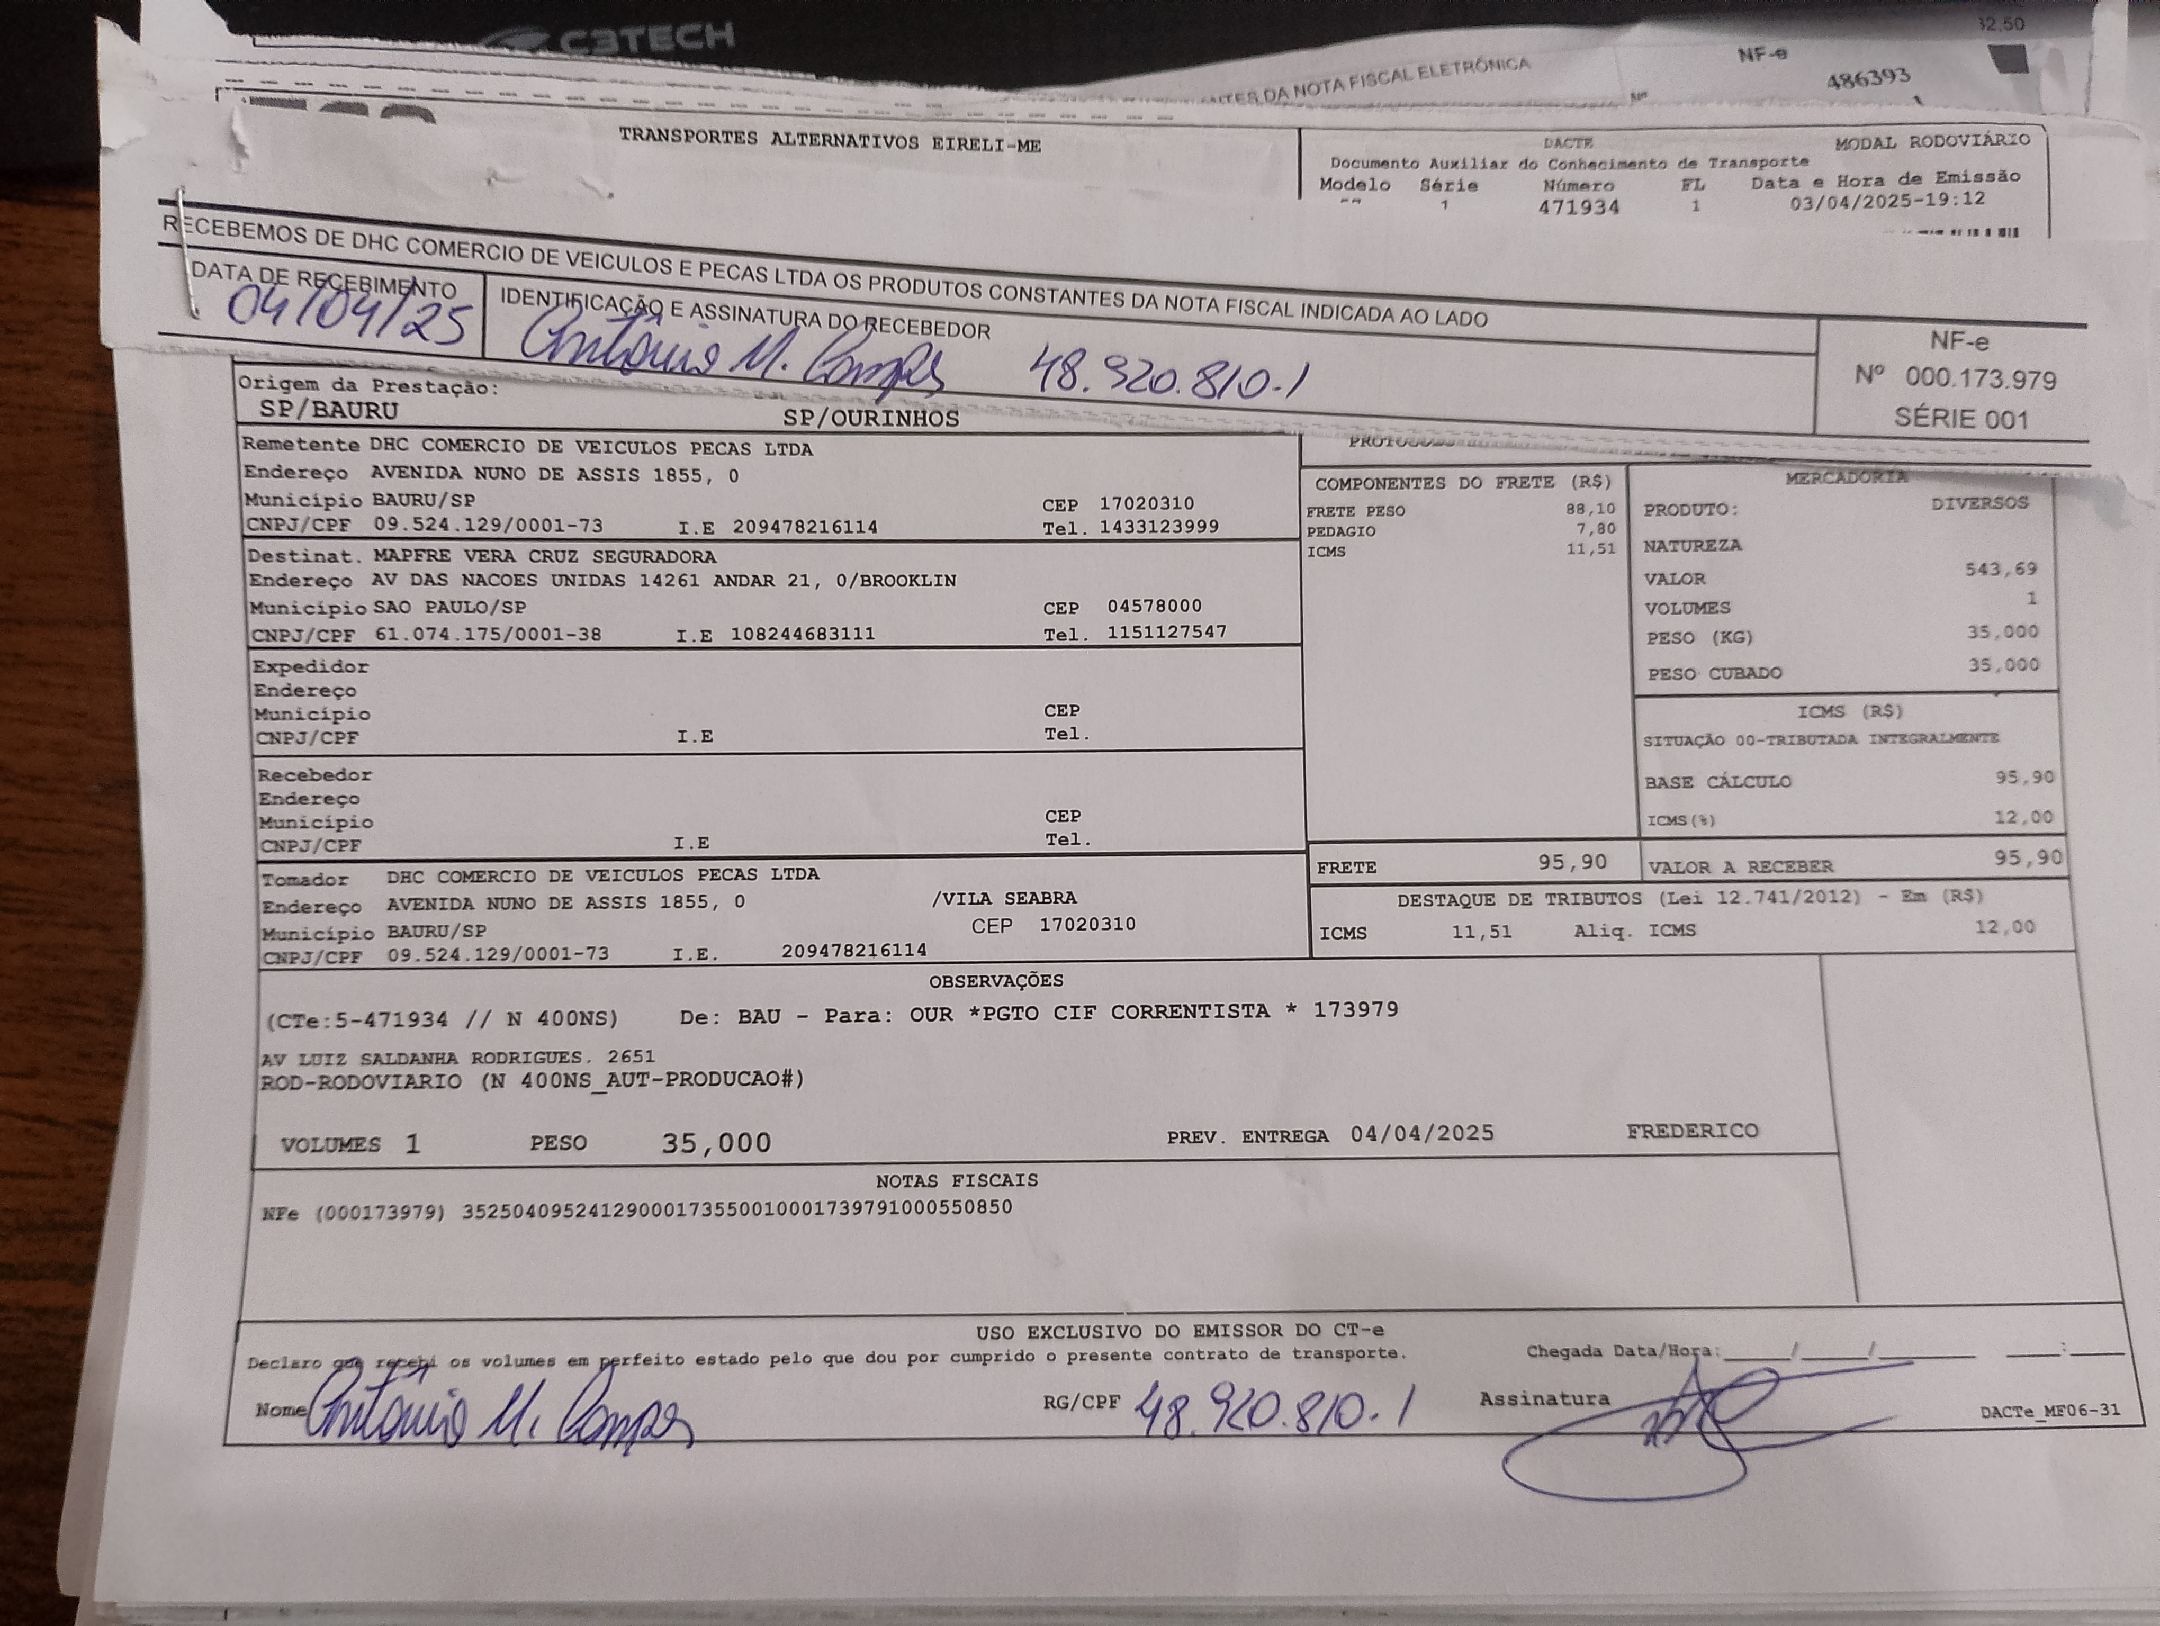 C3TECH
32,50
NF-e
DA NOTA FISCAL ELETRÔNICA
Nº 486393
TRANSPORTES ALTERNATIVOS EIRELI-ME
DACTE MODAL RODOVIÁRIO
Documento Auxiliar do Conhecimento de Transporte
Modelo Série Número FL Data e Hora de Emissão
1 471934 1 03/04/2025-19:12
RECEBEMOS DE DHC COMERCIO DE VEICULOS E PECAS LTDA OS PRODUTOS CONSTANTES DA NOTA FISCAL INDICADA AO LADO
DATA DE RECEBIMENTO IDENTIFICAÇÃO E ASSINATURA DO RECEBEDOR
04/04/25 Antônio M. Campos 48.920.810-1
NF-e
Nº 000.173.979
SÉRIE 001
Origem da Prestação:
SP/BAURU SP/OURINHOS
Remetente DHC COMERCIO DE VEICULOS PECAS LTDA
Endereço AVENIDA NUNO DE ASSIS 1855, 0
Município BAURU/SP CEP 17020310
CNPJ/CPF 09.524.129/0001-73 I.E 209478216114 Tel. 1433123999
Destinat. MAPFRE VERA CRUZ SEGURADORA
Endereço AV DAS NACOES UNIDAS 14261 ANDAR 21, 0/BROOKLIN
Município SAO PAULO/SP CEP 04578000
CNPJ/CPF 61.074.175/0001-38 I.E 108244683111 Tel. 1151127547
Expedidor
Endereço
Município CEP
CNPJ/CPF I.E Tel.
Recebedor
Endereço
Município CEP
CNPJ/CPF I.E Tel.
Tomador DHC COMERCIO DE VEICULOS PECAS LTDA
Endereço AVENIDA NUNO DE ASSIS 1855, 0 /VILA SEABRA
Município BAURU/SP CEP 17020310
CNPJ/CPF 09.524.129/0001-73 I.E. 209478216114
COMPONENTES DO FRETE (R$)
FRETE PESO 88,10
PEDAGIO 7,80
ICMS 11,51
MERCADORIA
PRODUTO: DIVERSOS
NATUREZA
VALOR 543,69
VOLUMES 1
PESO (KG) 35,000
PESO CUBADO 35,000
ICMS (R$)
SITUAÇÃO 00-TRIBUTADA INTEGRALMENTE
BASE CÁLCULO 95,90
ICMS(%) 12,00
FRETE 95,90 VALOR A RECEBER 95,90
DESTAQUE DE TRIBUTOS (Lei 12.741/2012) - Em (R$)
ICMS 11,51 Aliq. ICMS 12,00
OBSERVAÇÕES
(CTe:5-471934 // N 400NS) De: BAU - Para: OUR *PGTO CIF CORRENTISTA * 173979
AV LUIZ SALDANHA RODRIGUES. 2651
ROD-RODOVIARIO (N 400NS_AUT-PRODUCAO#)
VOLUMES 1 PESO 35,000 PREV. ENTREGA 04/04/2025 FREDERICO
NOTAS FISCAIS
NFe (000173979) 35250409524129000173550010001739791000550850
USO EXCLUSIVO DO EMISSOR DO CT-e
Declaro que recebi os volumes em perfeito estado pelo que dou por cumprido o presente contrato de transporte. Chegada Data/Hora:____/____/______ ____:____
Nome Antônio M. Campos RG/CPF 48.920.810-1 Assinatura
DACTe_MF06-31